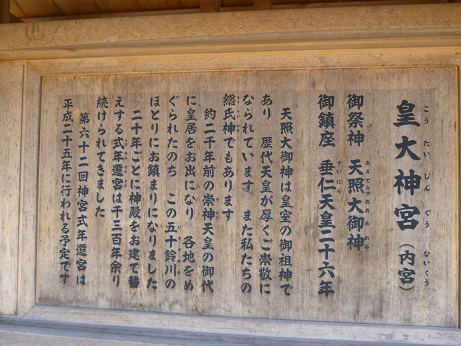 皇大神宮（内宮）
こうたいじんぐう ないくう
御祭神 天照大御神
あまてらすおおみかみ
御鎮座 垂仁天皇二十六年
すいにん
天照大御神は皇室の御祖神で
あり 歴代天皇が厚くご崇敬に
なられています また私たちの
総氏神でもあります
約二千年前の崇神天皇の御代
に皇居をお出になり 各地をめ
ぐられたのち この五十鈴川の
ほとりにお鎮まりになりました
二十年ごとに神殿をお建て替
えする式年遷宮は千三百年余り
続けられてきました
第六十二回神宮式年遷宮は
平成二十五年に行われる予定です